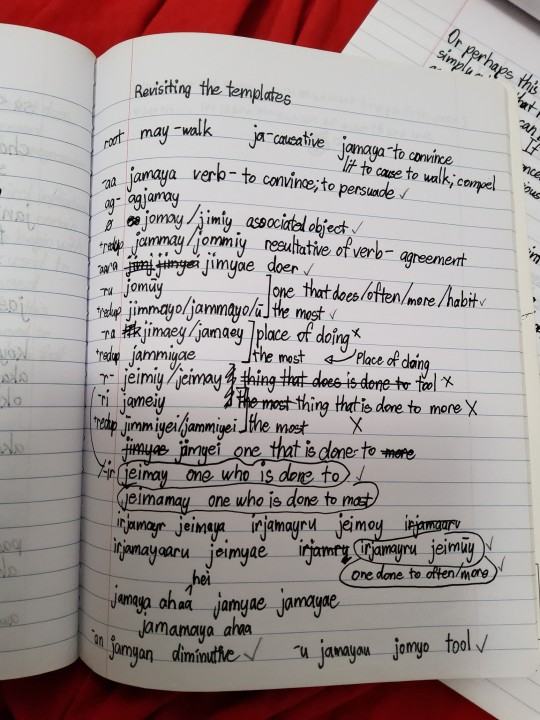 Revisiting the templates
root may-walk ja-causative jamaya-to convince
lit to cause to walk; compel
-aa jamaya verb- to convince; to persuade ✓
ag- agjamay
jomay/jimiy associated object ✓
+redup jammay/jommiy resultative of verb- agreement
jimyae doer ✓
-ru jomūy one that does/often/more/habit ✓
+redup jimmayo/jammayo/ū the most ✓
-ra jimaey/jamaey place of doing x
+redup jammiyae the most ← Place of doing
-r- jeimiy/jeimay thing that does is done to tool X
-ri jameiy the most thing that is done to more X
+redup jimmiyei/jammiyei the most X
jimyae jimyei one that is done to more
-ir jeimay one who is done to ✓
jeimamay one who is done to most
irjamayr jeimaya irjamayru jeimoy irjamaaru
irjamayaaru jeimyae irjamry irjamayru jeimūy ✓
one done to often/more ✓
hei
jamaya ahaa jamyae jamayae
jamamaya ahaa
-an jamyan diminutive ✓ -u jamayau jomyo tool ✓
Or perhaps this
simply